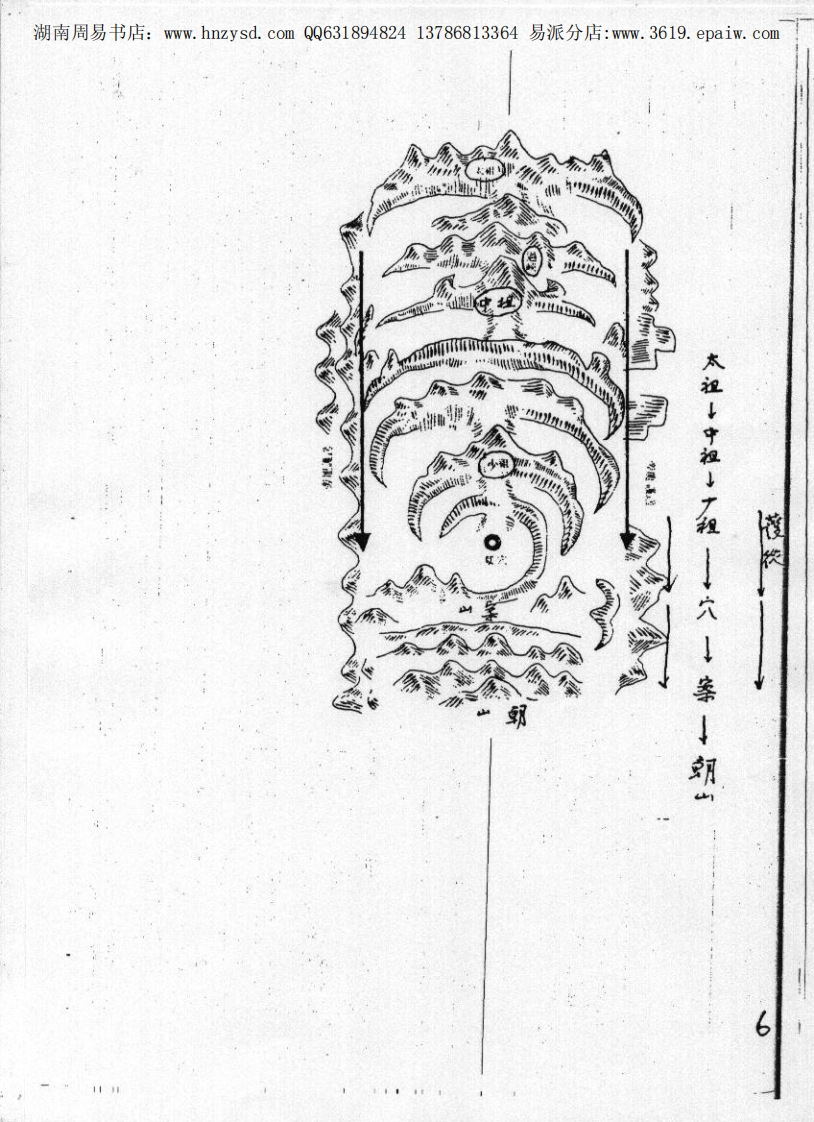 湖南周易书店：www.hnzysd.com QQ631894824 13786813364 易派分店:www.3619.epaiw.com
太祖
中祖
少祖
穴
案山
朝山
太祖→中祖→少祖→穴→案→朝山
護從
6